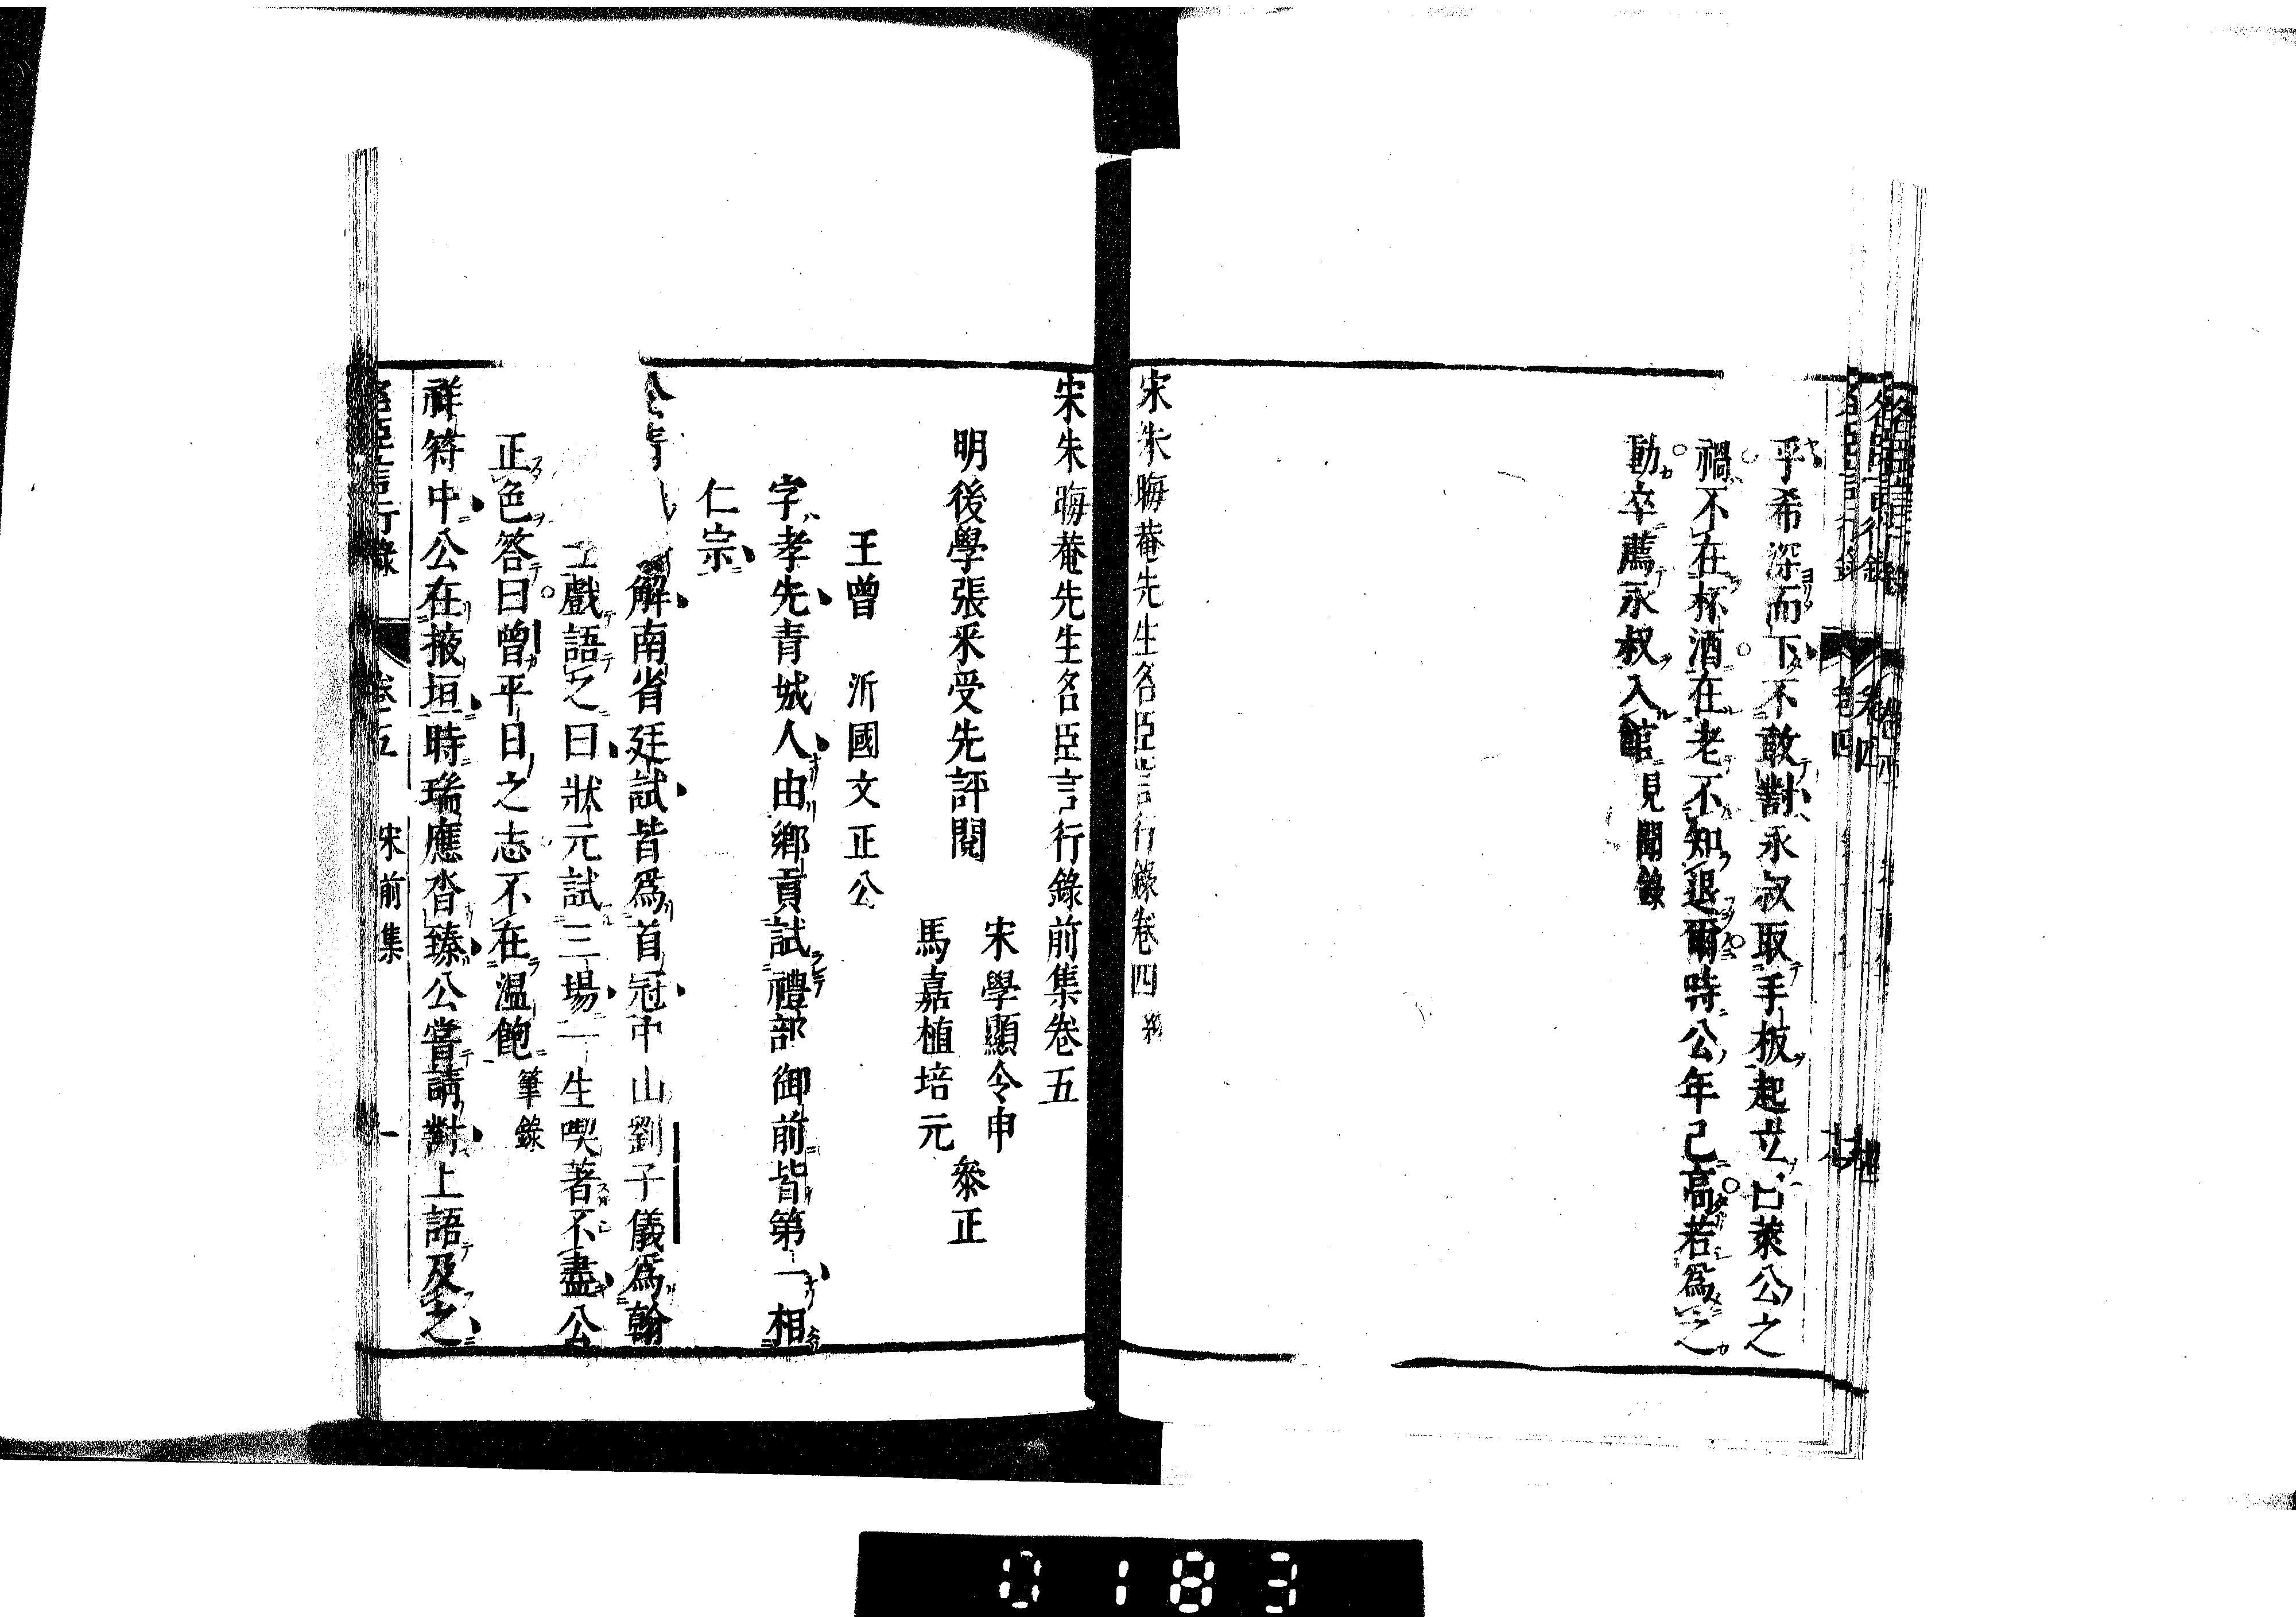 乎希深而下不敢對永叔取手板起立曰萊公之
禍不在杯酒在老不知退爾時公年已高若爲之
動卒薦永叔入館 見聞錄
宋朱晦菴先生名臣言行錄卷四
宋朱晦菴先生名臣言行錄前集卷五
明後學張釆受先評閱 宋學顯令申
馬嘉植培元 叅正
王曾 沂國文正公
字孝先青城人由鄉貢試禮部御前皆第一相
仁宗
解南省廷試皆爲首冠中山劉子儀爲翰
戲語之曰狀元試三場一生喫著不盡公
正色答曰曾平日之志不在温飽 筆錄
祥符中公在掖垣時瑞應沓臻公嘗請對上語及之
名臣言行錄 卷五 宋前集 一
0183